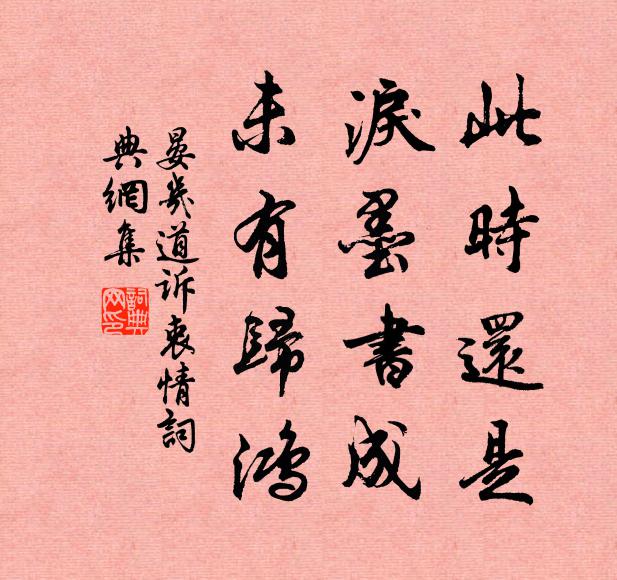 此時還是
淚墨書成
未有歸鴻
晏幾道訴衷情詞
典網集
詞典
网印